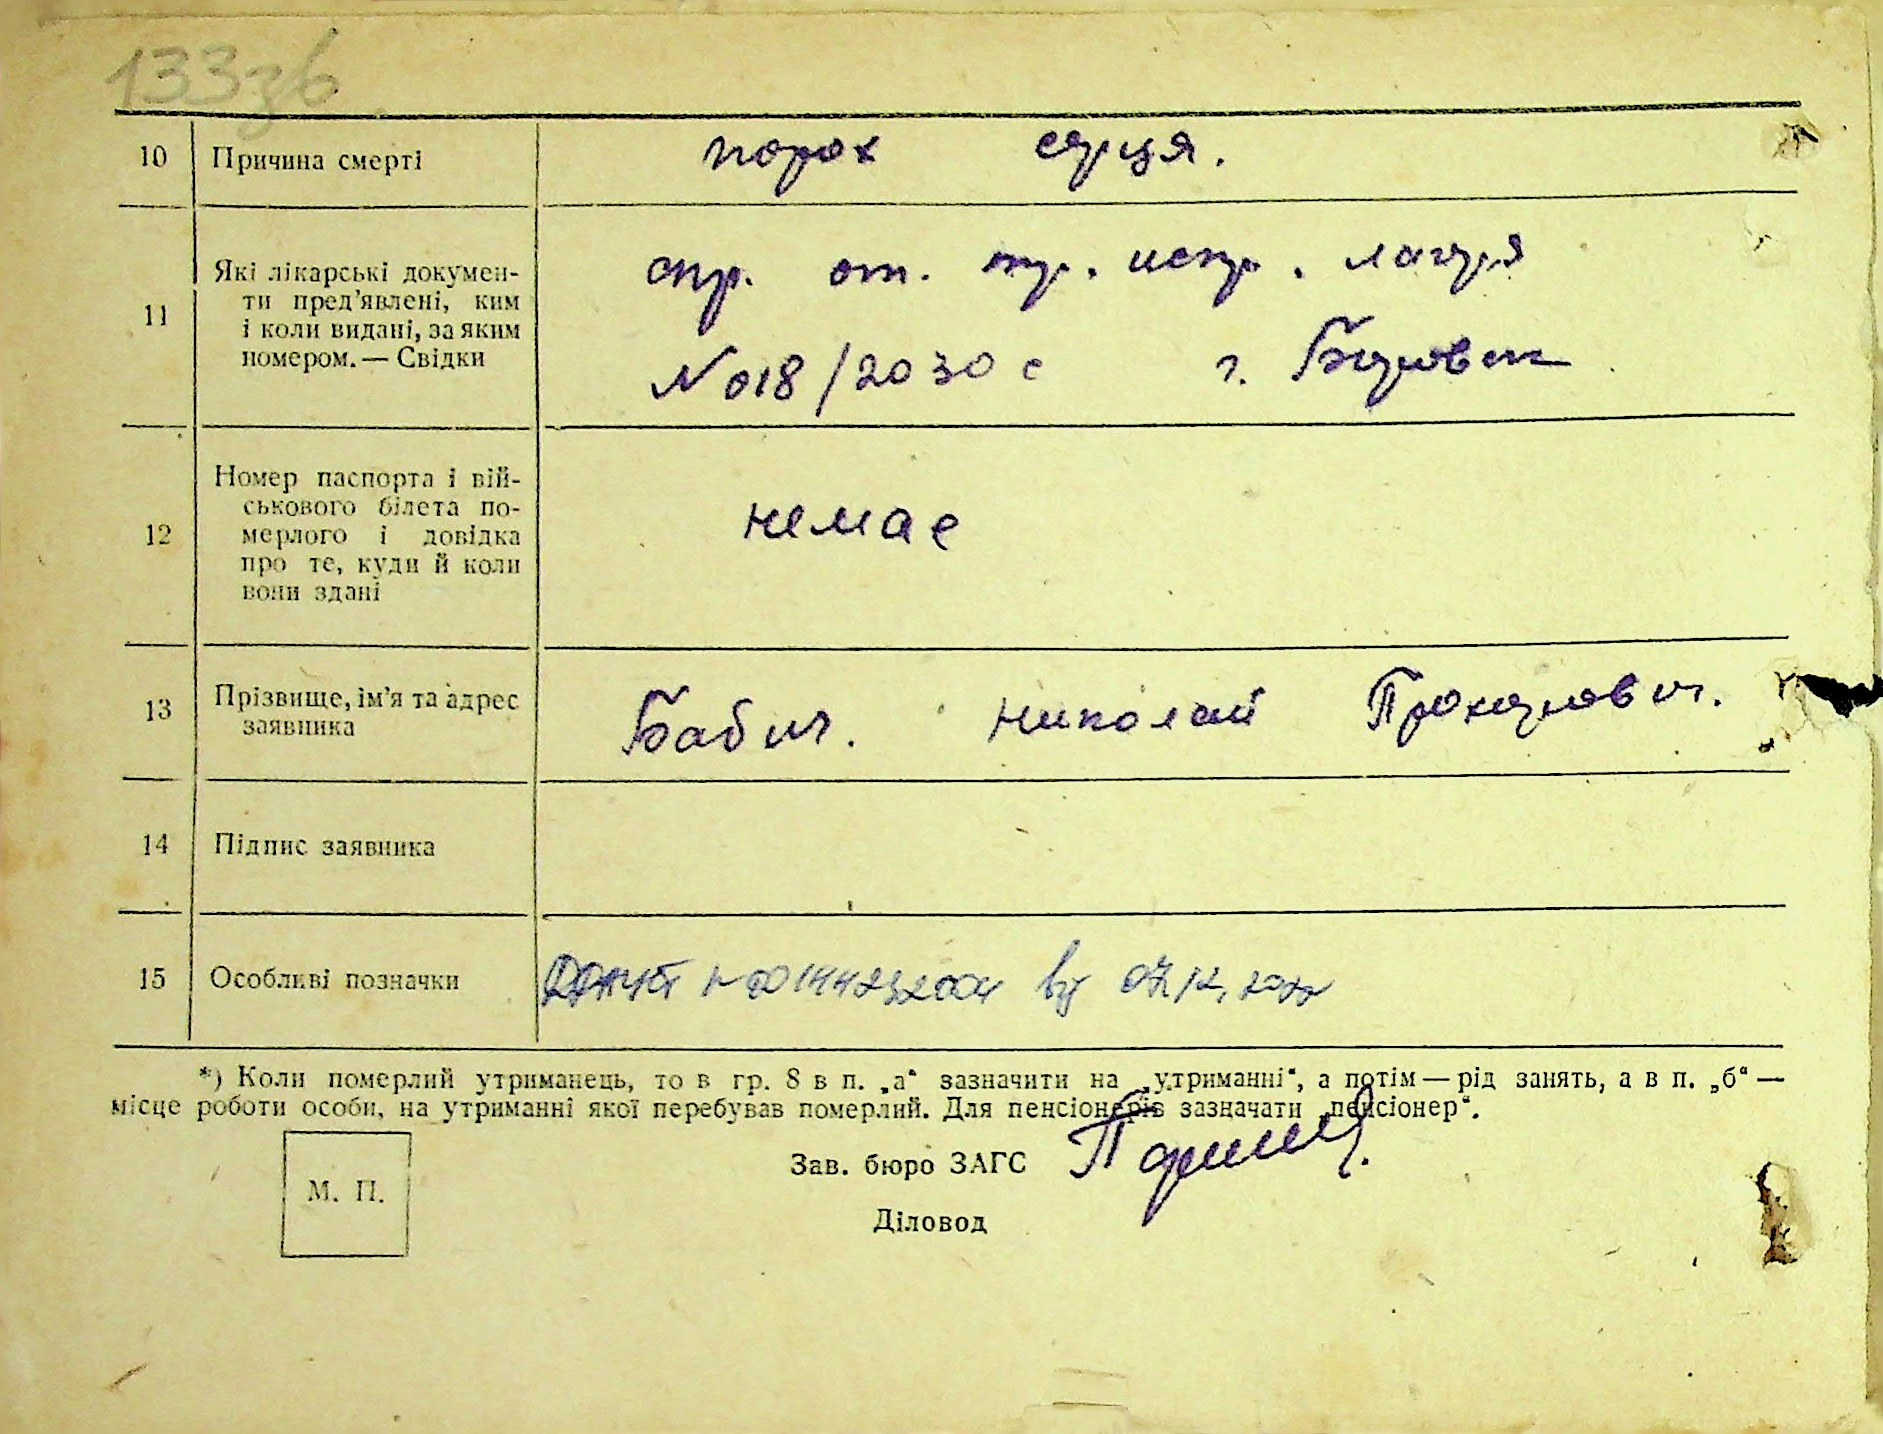 133зв
10 Причина смерті порок серця.
11 Які лікарські докумен-
ти пред'явлені, ким
і коли видані, за яким
номером. — Свідки
спр. от. тр. испр. лагеря
№ 018/2030 с г.
12 Номер паспорта і вій-
ськового білета по-
мерлого і довідка
про те, куди й коли
вони здані
немає
13 Прізвище, ім'я та адрес
заявника
Бабич. Николай Прокопович.
14 Підпис заявника
15 Особливі позначки
від 07.12.2022
*) Коли померлий утриманець, то в гр. 8 в п. „а" зазначити на „утриманні", а потім — рід занять, а в п. „б" —
місце роботи особи, на утриманні якої перебував померлий. Для пенсіонерів зазначати „пенсіонер".
М. П.
Зав. бюро ЗАГС
Діловод